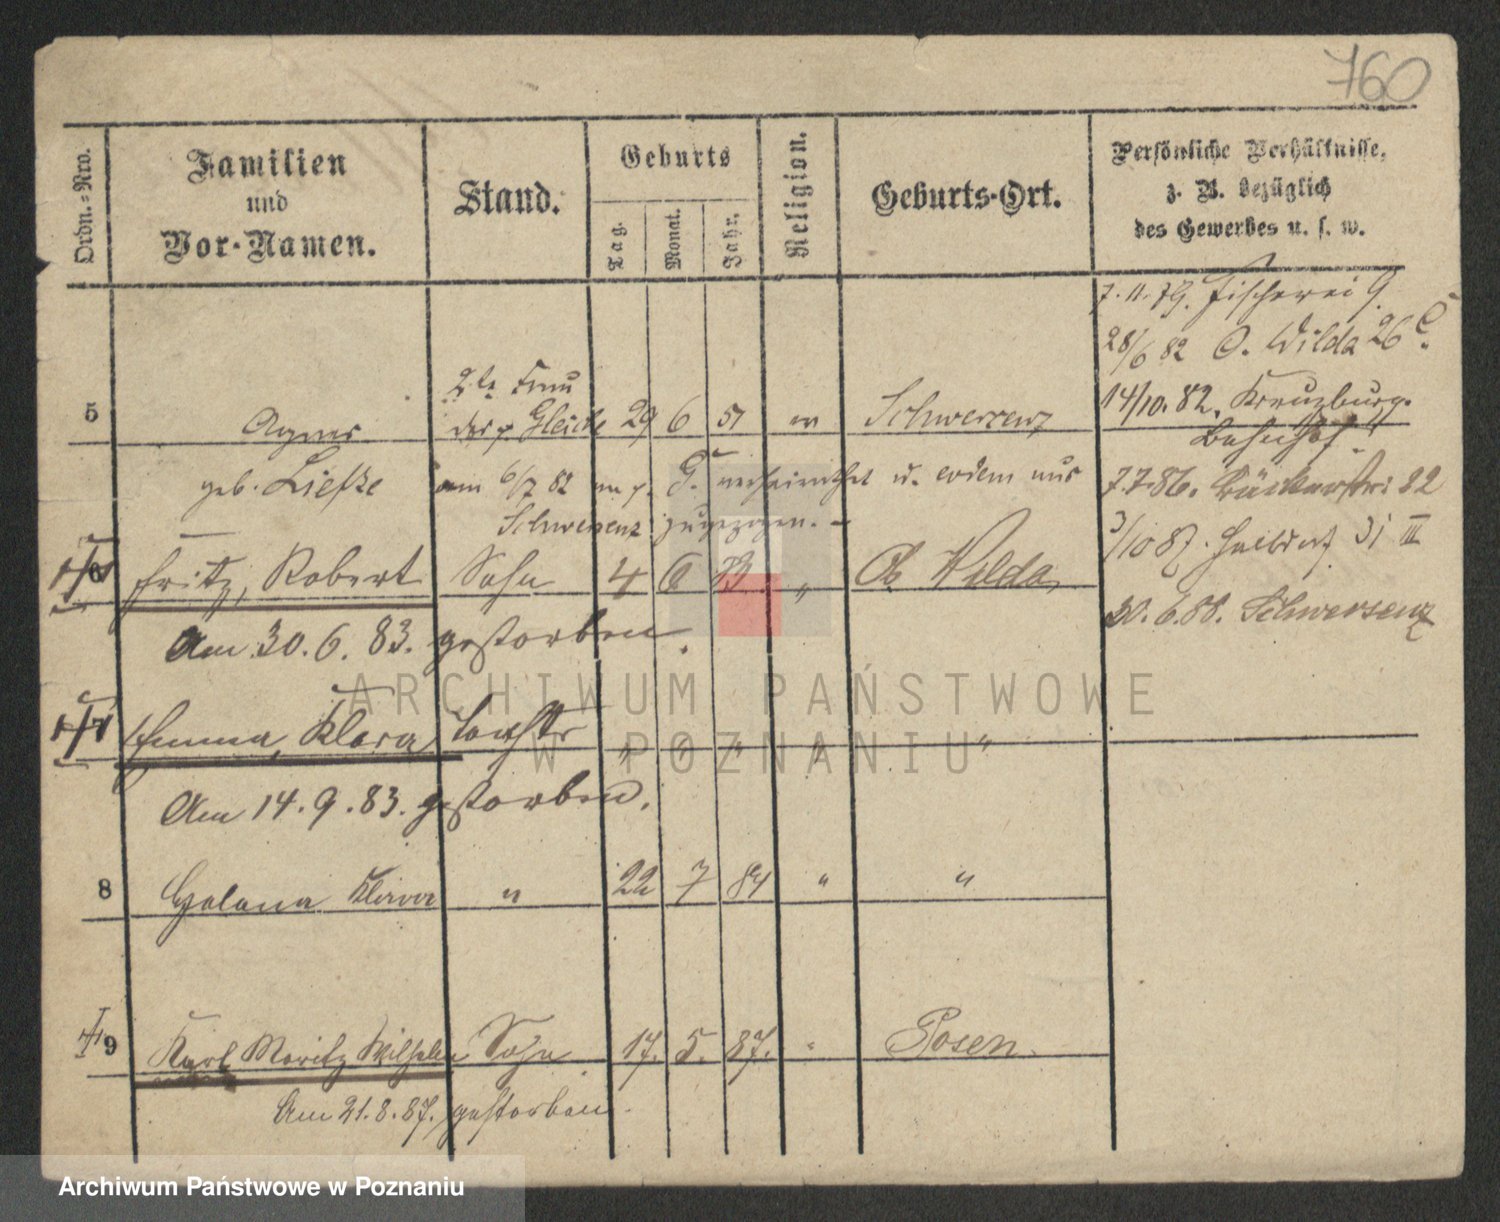 760
Ordn.-Nro.
Familien
und
Vor-Namen.
Stand.
Geburts
Tag.
Monat.
Jahr.
Religion.
Geburts-Ort.
Persönliche Verhältnisse,
z. B. bezüglich
des Gewerbes u. s. w.
7.11.79. Fischerei 9.
28/6 82 O. Wilda 26
14/10. 82. Kreuzburg.
Bahnhof.
7.7.86. Bäckerstr. 22
3/10 87. Halbdorf 31 III
30.6.88. Schwersenz
5 Agnes 2te Frau des p. Gleiche 29 6 51 ev Schwersenz
geb. Liefke am 6/7 82 m p. G. verheirathet u. erdem aus
Schwersenz zugezogen. –
6 Fritz, Robert Sohn 4 6 83 " Ob Wilda
Am 30.6.83. gestorben.
7 Emma, Klara Tochter " " " " "
Am 14.9.83. gestorben.
8 Klara " 22 7 84 " "
9 Karl Moritz Wilhelm Sohn 17. 5. 87. " Posen.
Am 21.8.87. gestorben.
ARCHIWUM PAŃSTWOWE
W POZNANIU
Archiwum Państwowe w Poznaniu